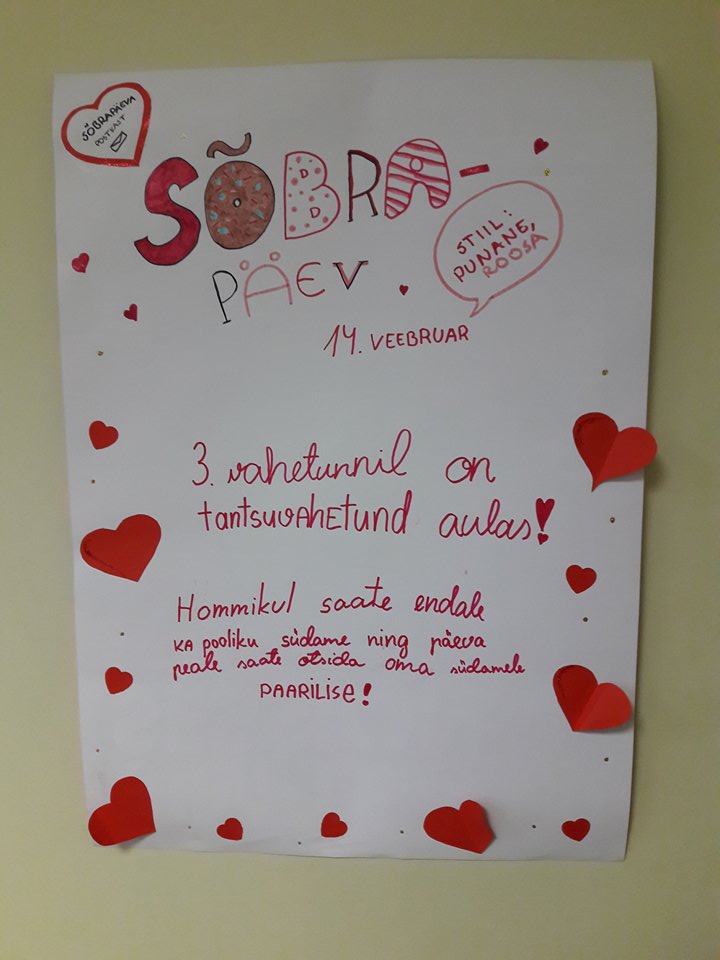 SÕBRAPÄEVA
POSTKAST
SÕBRA-
PÄEV
STIIL:
PUNANE,
ROOSA
14. VEEBRUAR
3. vahetunnil on
tantsuvahetund aulas!
Hommikul saate endale
KA pooliku südame ning päeva
peale saate otsida oma südamele
PAARILISE!